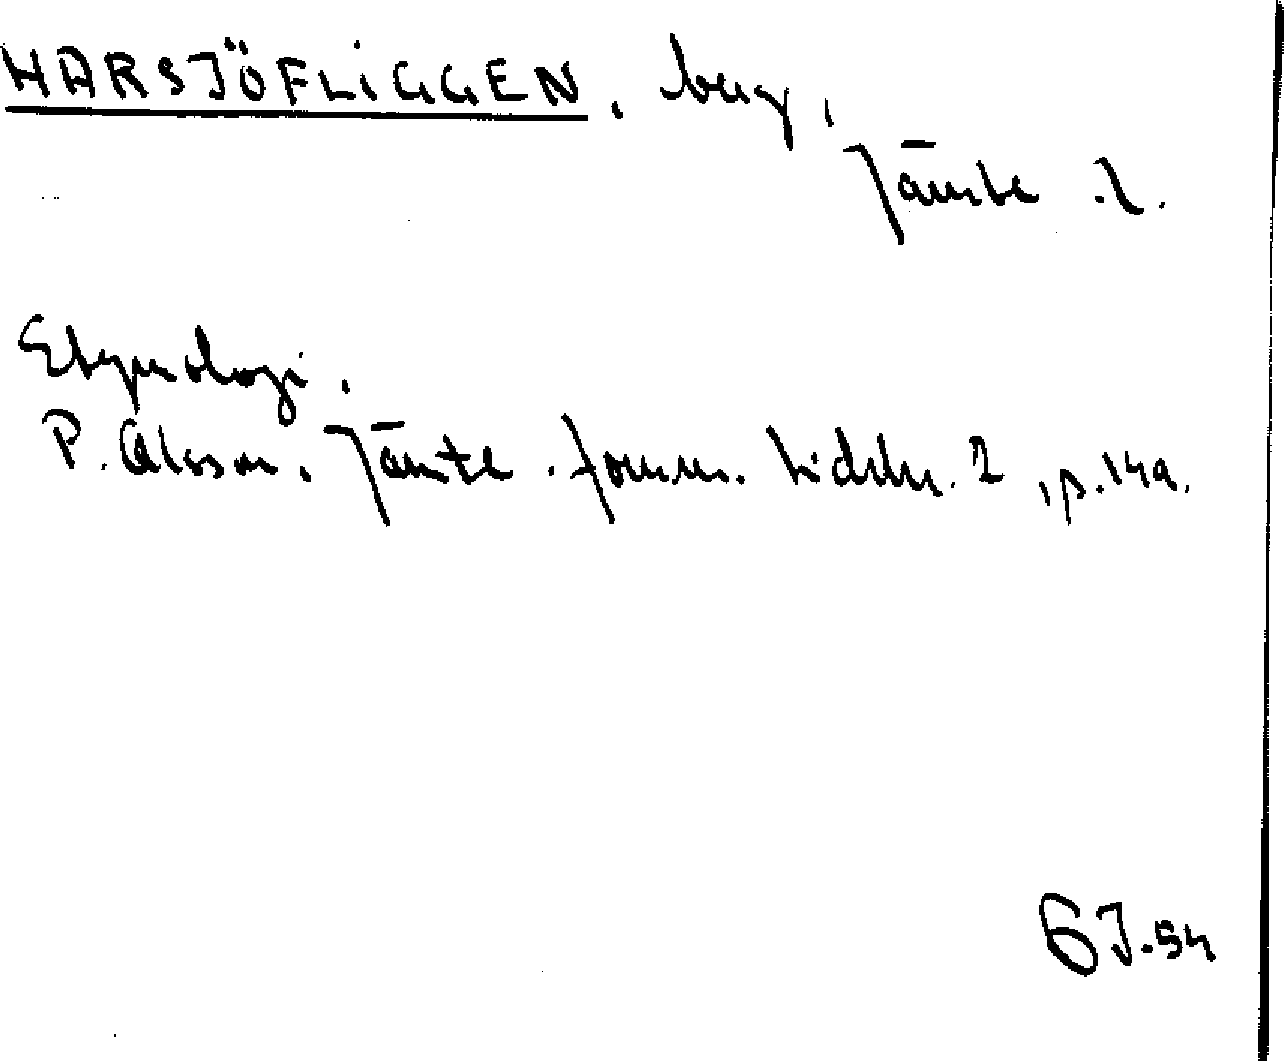 HARSJÖFLIGGEN, berg,
Jämtl.
Etymologi.
P. Olsson. Jämtl. fornm. tidskr. 2, p. 149.
GJ. 54